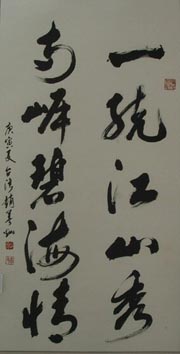 一統江山秀
两岸碧海情
庚寅夏台湾